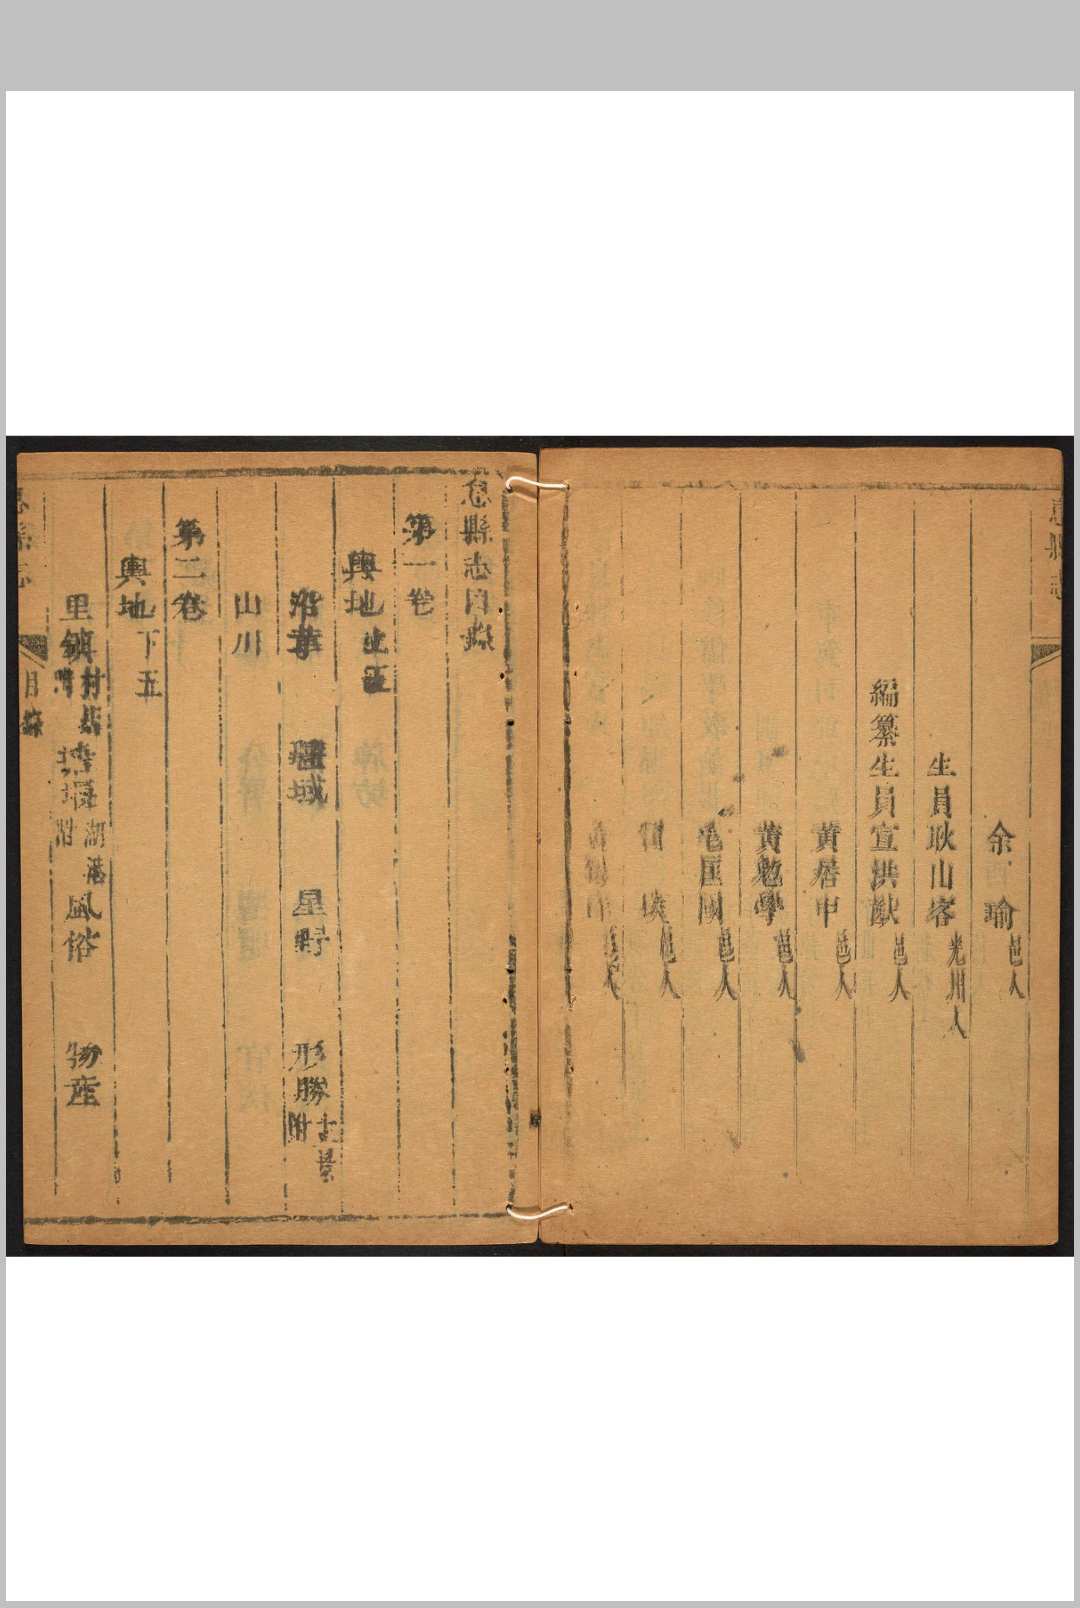 余西瑜邑人
生員耿山峉光州人
編纂生員宣洪猷邑人
黃居中邑人
黃勉學邑人
毛匡國邑人
邑人
邑人
息縣志目錄
第一卷
輿地上五
沿革 疆域 星野 形勝附十二景
山川
第二卷
輿地下五
里鎮附村店 塘堰附湖港 風俗 物產
目錄